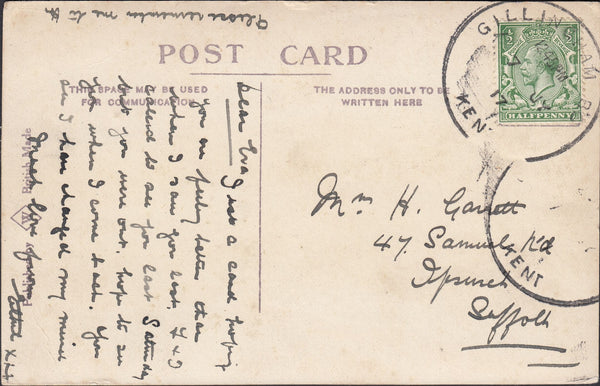 Please remember me to
POST CARD
THIS SPACE MAY BE USED
FOR COMMUNICATION
THE ADDRESS ONLY TO BE
WRITTEN HERE
British Made
Dear Eva Just a card hoping
you are feeling better than
when I saw you last, F & I
called to see you last Saturday
but you were out. hope to see
you when I come back. You
see I have changed my mind
Much love from
Ethel x
Mrs H. Garrett
47 Samuel Rd
Ipswich
Suffolk
GILLINGHAM
KENT
17
HALFPENNY
KENT